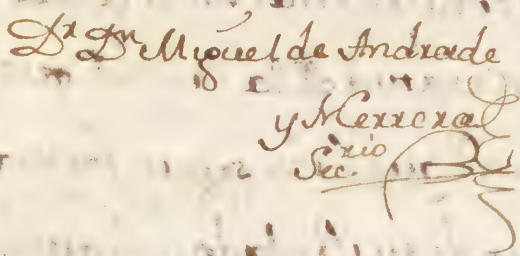 Dr Dn Miguel de Andrade
y Herrera
Sec.rio